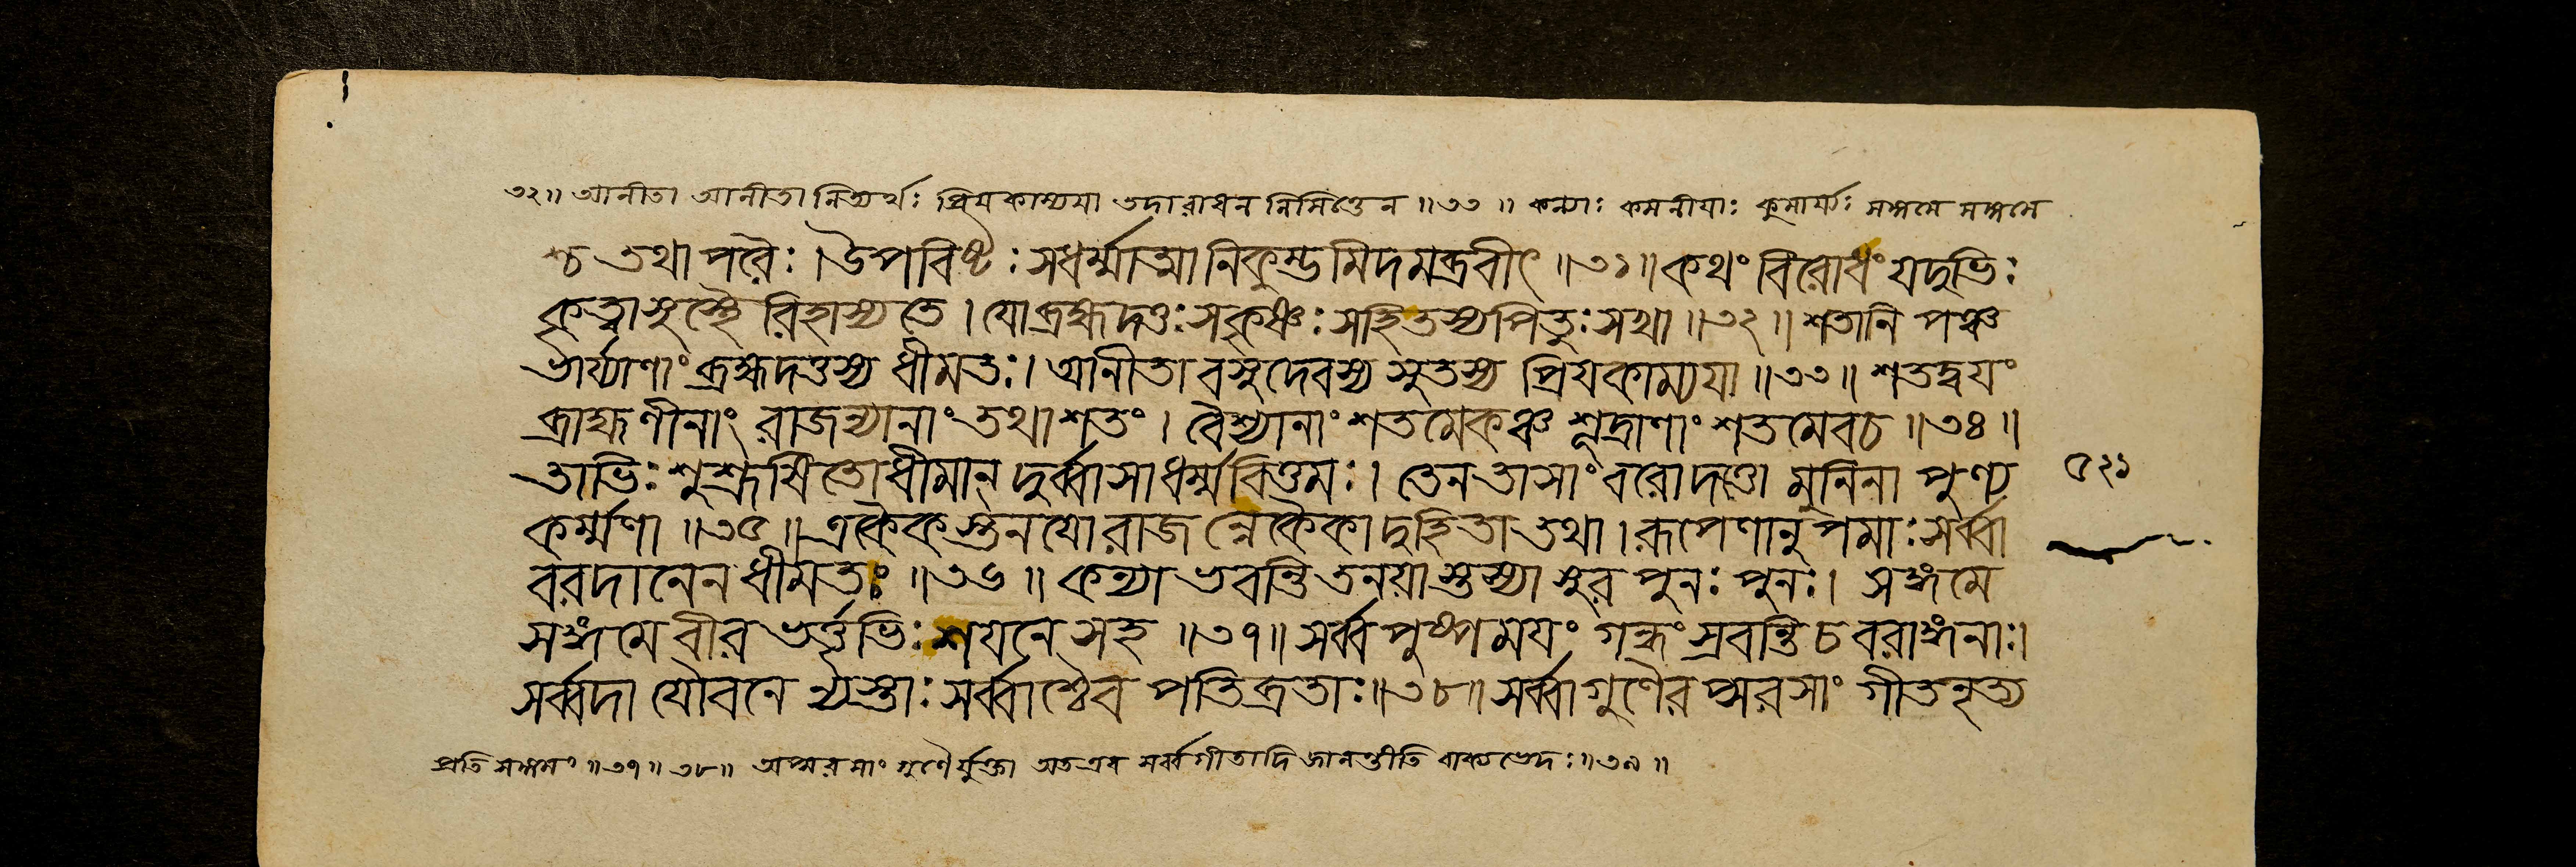 ৩২॥ আনীতা আনীতা নিত্যর্থঃ প্রিয়কাম্যয়া তদারাধন নিমিত্তেন ॥৩৩॥ কন্যাঃ কমনীয়াঃ কুমার্য্যঃ সঙ্গমে সঙ্গমে
শ্চ তথাপরৈঃ। উপবিষ্টঃ সধর্ম্মাত্মা নিকুম্ভমিদমব্রবীৎ ॥৩১॥ কথং বিরোধং যদুভিঃ
কৃত্বাসুস্থৈরিহাস্যতে। যোব্রহ্মদত্তঃ সকৃষ্ণঃ সহিতস্যপিতুঃ সখা ॥৩২॥ শতানি পঞ্চ
ভার্য্যাণাং ব্রহ্মদত্তস্য ধীমতঃ। আনীতা বসুদেবস্য সুতস্য প্রিয়কাম্যয়া ॥৩৩॥ শতদ্বয়ং
ব্রাহ্মণীনাং রাজন্যানাং তথাশতং। বৈশ্যানাং শতমেকঞ্চ শূদ্রাণাং শতমেবচ ॥৩৪॥
তাভিঃ শুশ্রূষিতোধীমান্ দুর্ব্বাসাধর্ম্মবিত্তমঃ। তেনতাসাং বরোদত্তো মুনিনা পুণ্য
কর্ম্মণা ॥৩৫॥ একৈকস্তনয়োরাজন্নেকৈকাদুহিতাতথা। রূপেণানুপমাঃ সর্ব্বা
বরদানেনধীমতঃ ॥৩৬॥ কন্যা ভবন্তি তনয়াস্তস্যাসুর পুনঃ পুনঃ। সঙ্গমে
সঙ্গমে বীর ভর্ত্তৃভিঃ শয়নে সহ ॥৩৭॥ সর্ব্বপুষ্পময়ং গন্ধং স্রবন্তি চ বরাঙ্গনাঃ।
সর্ব্বদা যৌবনে ন্যস্তাঃ সর্ব্বাশ্চৈব পতিব্রতাঃ ॥৩৮॥ সর্ব্বাগুণৈরপ্সরসাং গীতনৃত্য
৫২১
প্রতি সঙ্গমং ॥৩৭॥ ৩৮॥ অপ্সরসাং গুণৈর্যুক্তা অতএব সর্ব্বগীতাদি জানন্তীতি বাক্যভেদঃ ॥৩৯॥